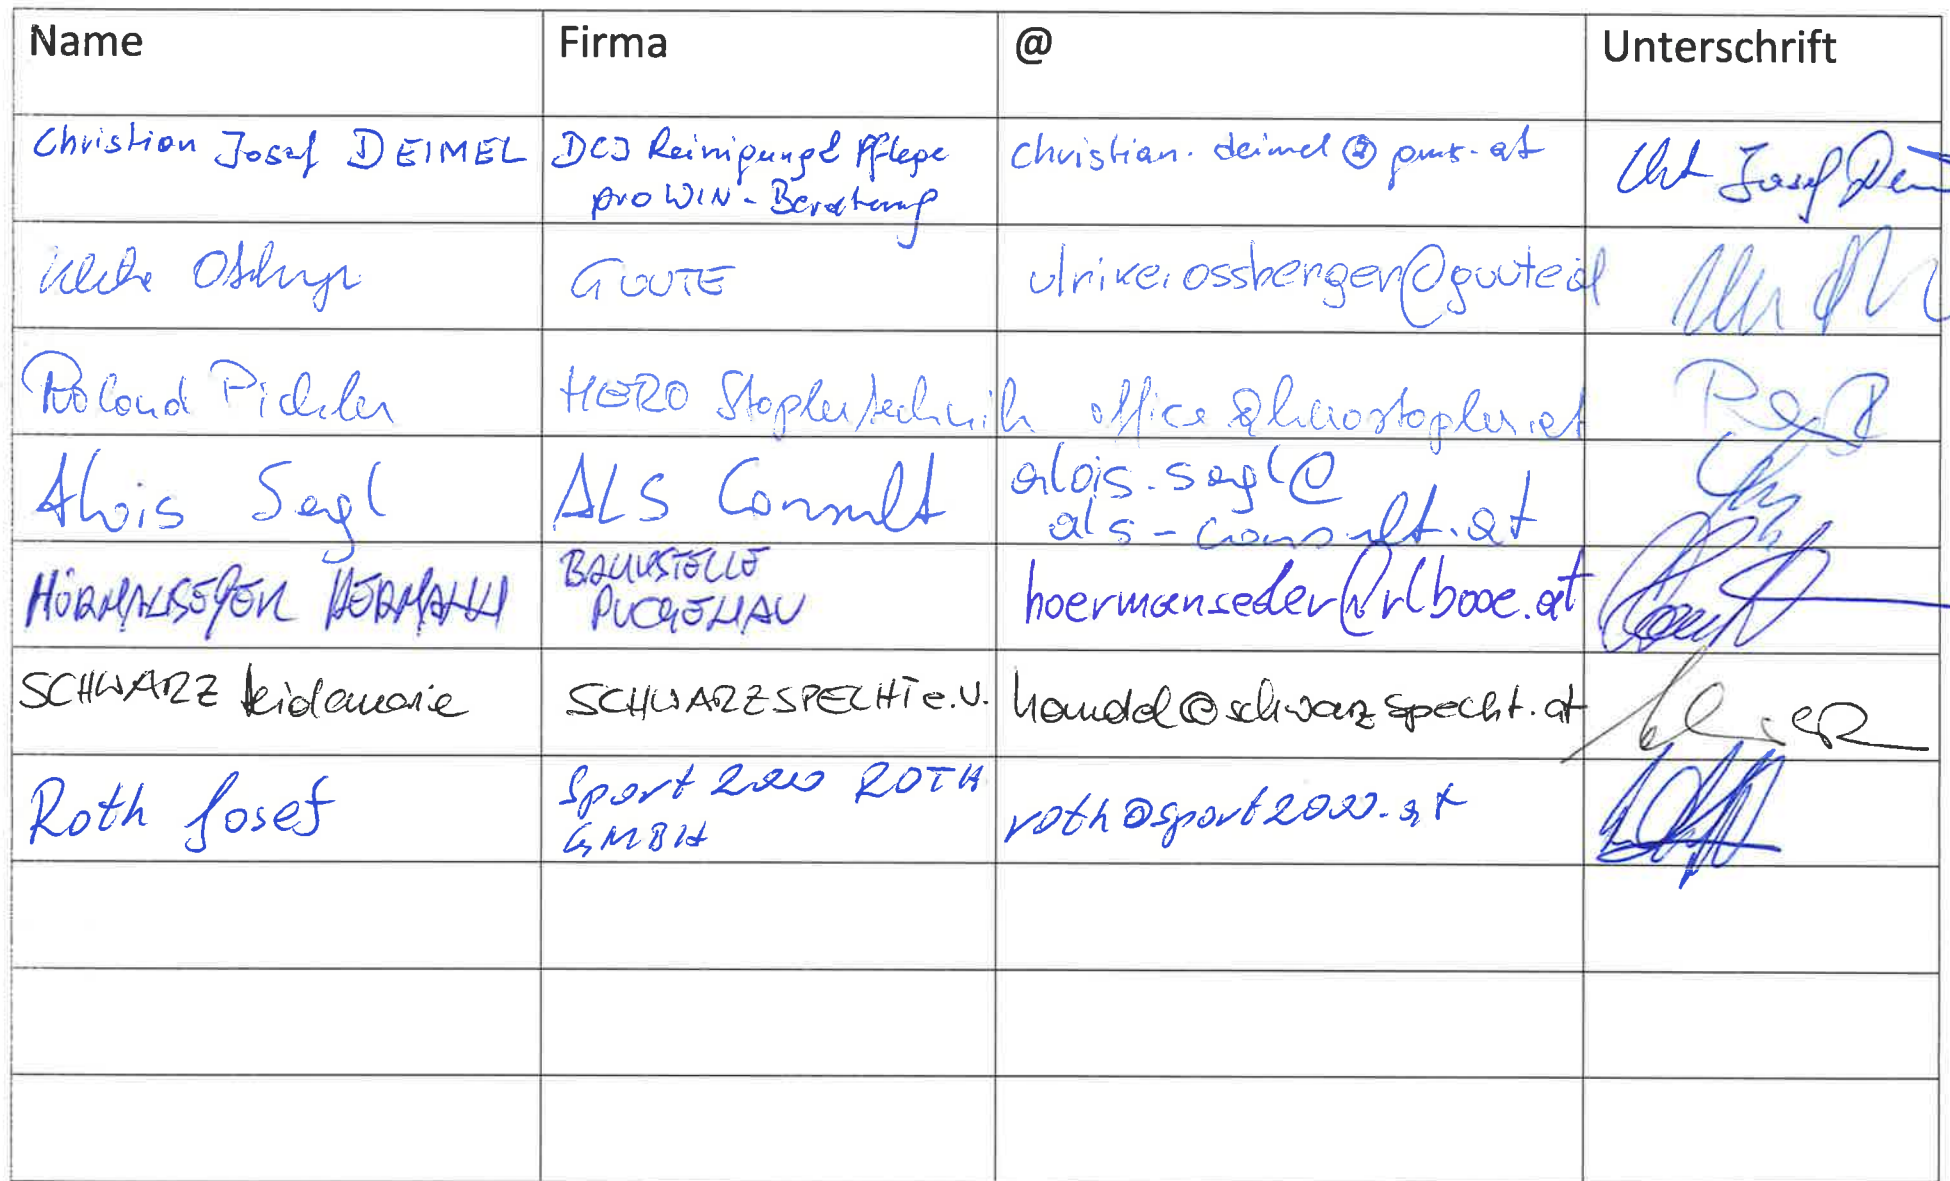 Name Firma @ Unterschrift
Christian Josef DEIMEL DCJ Reinigung & Pflege christian.deimel@gmx.at
proWIN-Beratung
Ulrike Ossberger GUUTE ulrike.ossberger@guute.at
Roland Pichler HERO Staplertechnik office@herostapler.at
Alois Segl ALS Consult alois.segl@
als-consult.at
HÖRMANSEDER HERMANN BANKSTELLE hoermanseder@rlbooe.at
PUCHENAU
SCHWARZ Heidemarie SCHWARZSPECHT e.U. handel@schwarzspecht.at
Roth Josef Sport 2000 ROTH roth@sport2000.at
GMBH